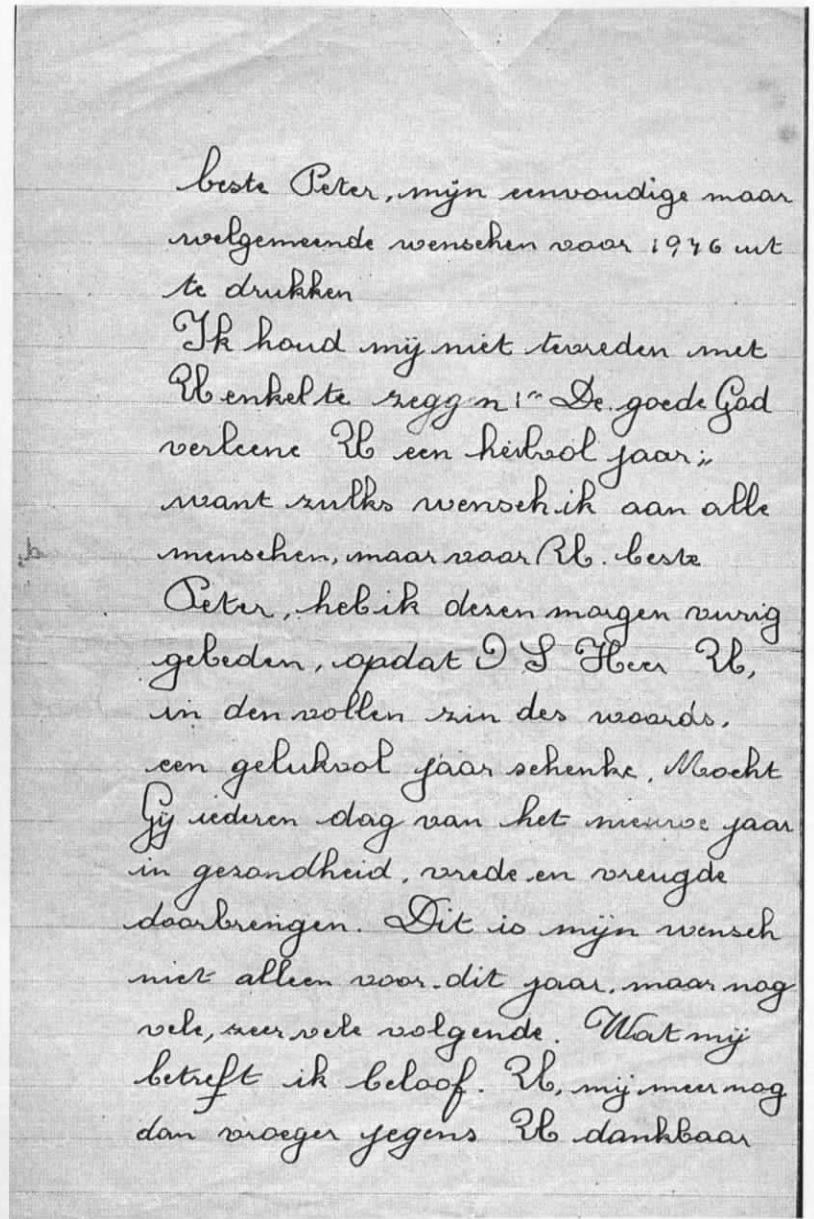 beste Peter, mijn eenvoudige maar
welgemeende wenschen voor 1946 uit
te drukken
Ik houd mij niet tevreden met
U enkel te zegg n: " De goede God
verleene U een heilvol jaar;"
want zulks wensch ik aan alle
menschen, maar voor U. beste
Peter, heb ik dezen morgen vurig
gebeden, opdat O L Heer U,
in den vollen zin des woords,
een gelukvol jaar schenke, Mocht
Gij iederen dag van het nieuwe jaar
in gezondheid, vrede en vreugde
doorbrengen. Dit is mijn wensch
niet alleen voor dit jaar, maar nog
vele, zeer vele volgende. Wat mij
betreft ik beloof. U, mij meer nog
dan vroeger jegens U dankbaar